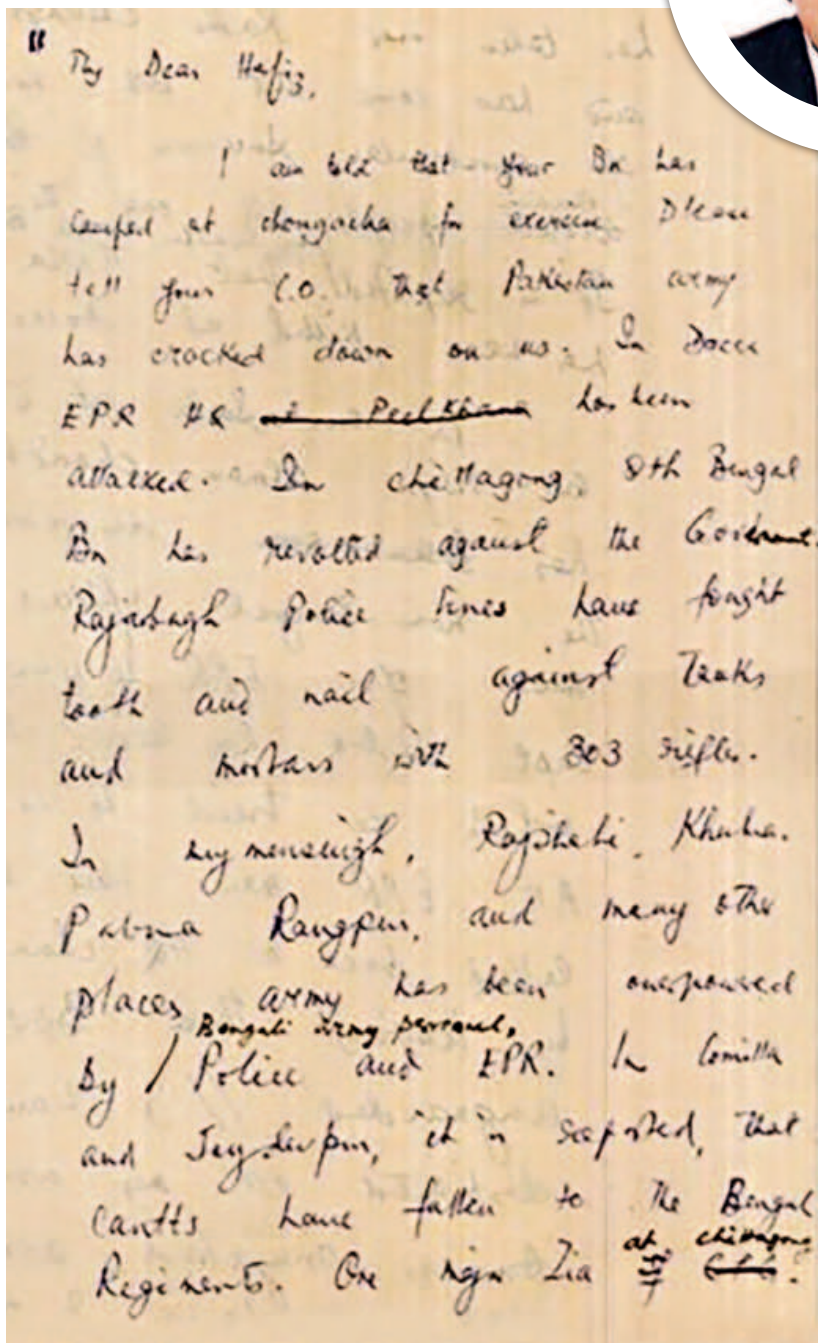 "
My Dear Hafiz,
I am told that your Bn has
camped at chongacha for exercise Please
tell your C.O. that Pakistan army
has cracked down on us. In Dacca
EPR HQ at Peelkhana has been
attacked. In chittagong, 8th Bengal
Bn has revolted against the Government.
Rajarbagh Police lines have fought
tooth and nail against Tanks
and mortars with 303 rifles.
In mymensingh, Rajshahi, Khulna.
Pabna Rangpur, and many other
places army has been overpowered
Bengali army personnel,
by / Police and EPR. In Comilla
and Joydevpur, it is reported, that
cantts have fallen to the Bengal
at chittagong
Regiments. One major Zia